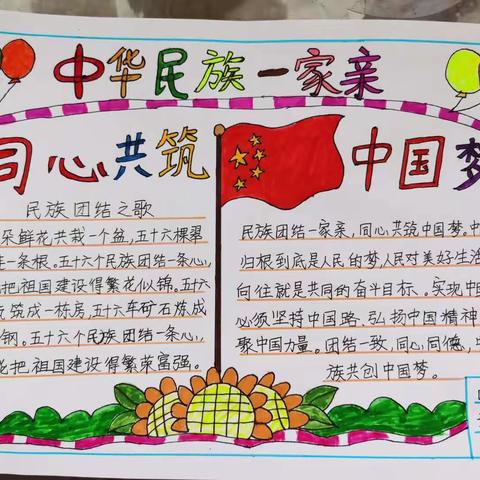 中华民族一家亲
同心共筑
中国梦
民族团结之歌
朵鲜花共栽一个盆,五十六棵翠
连一条根。五十六个民族团结一条心,
把祖国建设得繁花似锦。五六
筑成一栋房,五六车矿石炼成
钢。五十六个民族团结一条心,
把祖国建设得繁荣富强。
民族团结一家亲,同心共筑中国梦。中
归根到底是人民的梦,人民对美好生活
向往就是共同的奋斗目标。实现中
必须坚持中国路、弘扬中国精神
聚中国力量。团结一致,同心同德,中
族共创中国梦。